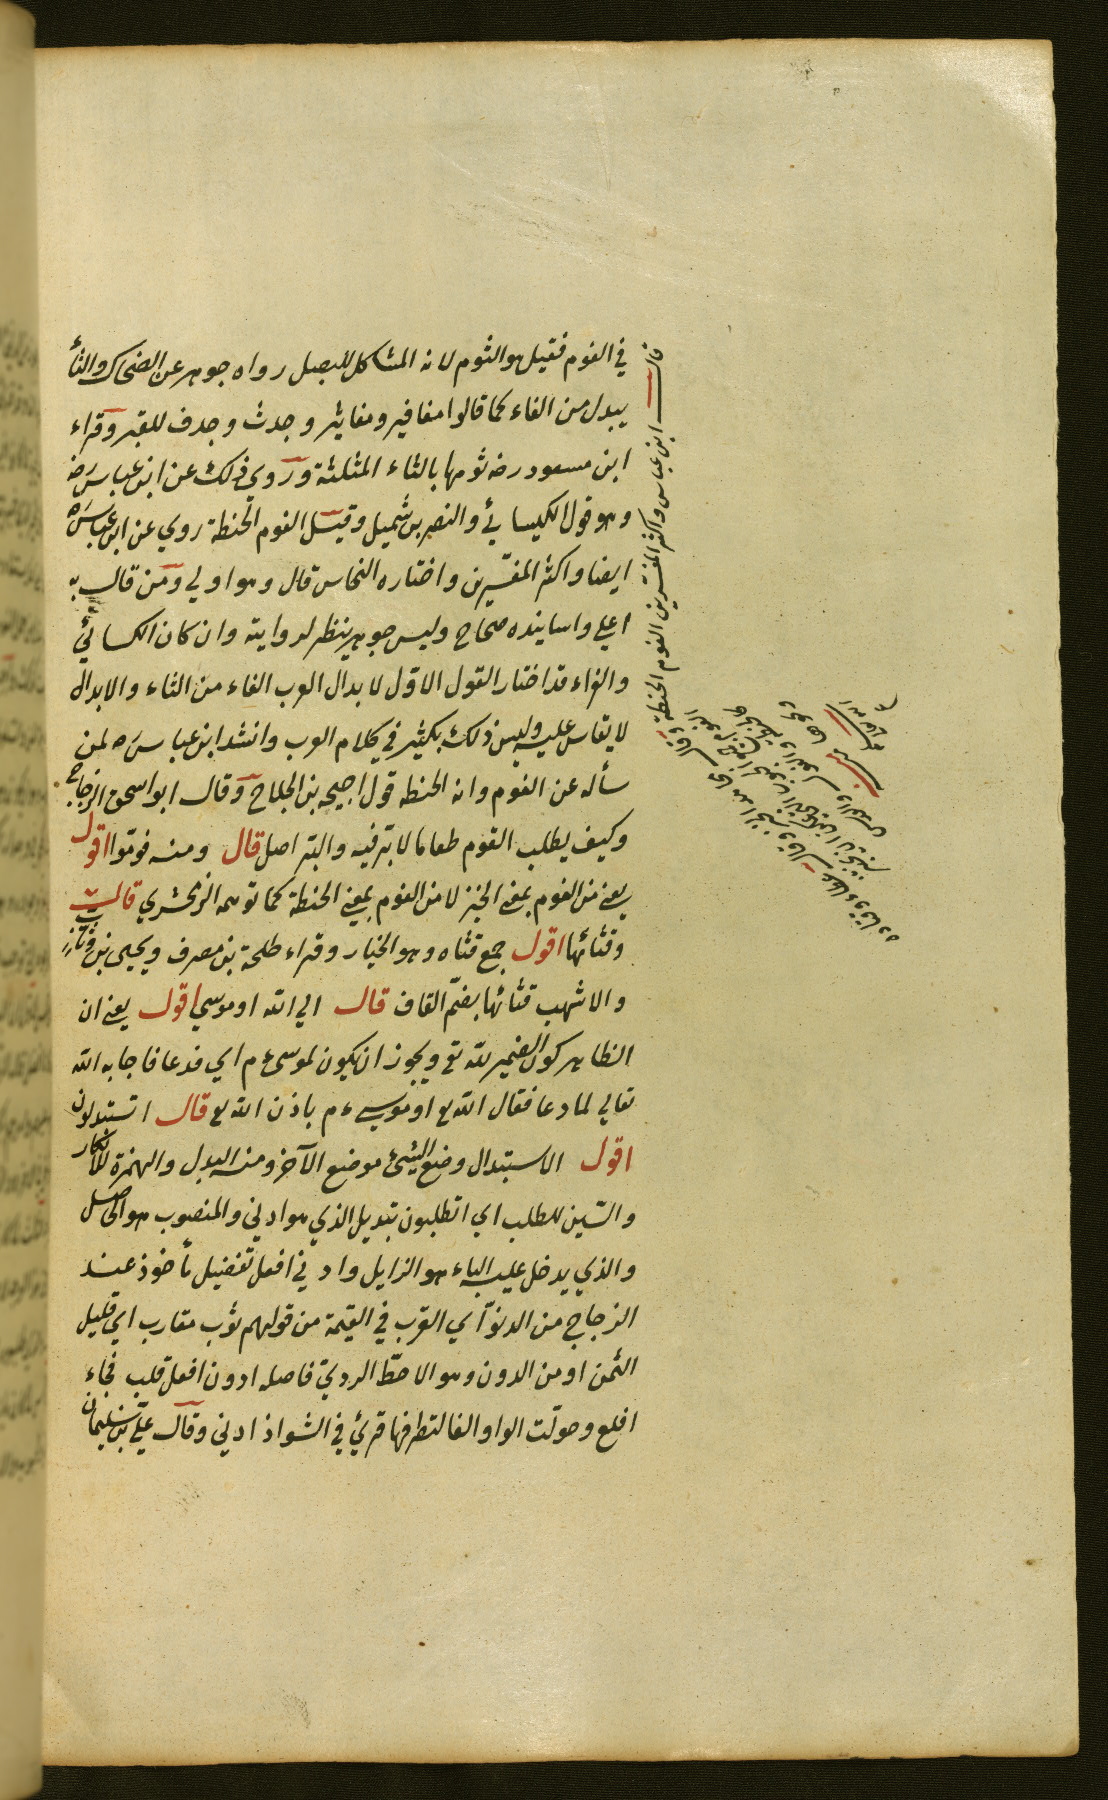 في الفوم فقيل هو الثوم لانه المشاكل للبصل رواه جوهر عن الضحاك والثأ
يبدل من الفاء كما قالوا مغافير ومغاثير وجدث وجدف للقبر وقراء
ابن مسعود رضه ثومها بالثاء المثلثة وروي ذلك عن ابن عباس رضه
وهو قول الكيسائي والنضر بن شميل وقيل الفوم الحنطة روي عن ابن عباس رضه
ايضا واكثر المفسرين واختاره النحاس قال وهو اولي ومن قال به
اعلي واسانيده صحاح وليس جوهر ينظر لروايته وان كان الكسائي
والفراء قد اختار القول الاول لابدال العرب الفاء من الثاء والابدال
لا يقاس عليه وليس ذلك بكثير في كلام العرب وانشد ابن عباس رضه لمن
سأله عن الفوم وانه الحنطه قول احيحه بن الجلاح وقال ابو اسحق الزجاج
وكيف يطلب القوم طعاما لا بر فيه والبر اصل قال ومنه فوموا اقول
يعني من الفوم بمعني الخبز لا من الفوم بمعني الحنطة كما توهمه الزمخشري قالت
وقثائها اقول جمع قثاه وهو الخيار وقراء طلحة بن مصرف ويحيى بن وثاب
والاشهب قثائها بضم القاف قال الي الله او موسي اقول يعني ان
الظاهر كون الضمير لله تع ويجوز ان يكون لموسى ع م اي فدعا فاجابه الله
تعالي لما دعا فقال الله تع او موسي ع م باذن الله تع قال اتستبدلون
اقول الاستبدال وضع الشئ موضع الآخر ومنه البدل والهمزة للانكار
والسين للطلب اي اتطلبون تبديل الذي هو ادني والمنصوب هو الحاصل
والذي يدخل عليه الباء هو الزايل وادني افعل تفضيل مأخوذ عند
الزجاج من الدنو اي القرب في القيمة من قولهم ثوب مقارب اي قليل
الثمن او من الدون وهو الاحط الردي فاصله ادون افعل قلب فجاء
افلع وحولت الواو الفا لتطرفها قرئ في الشواذ ادني وقال علي بن سليمان
قال ابن عباس واكثر المفسرين الفوم الحنطة وقال